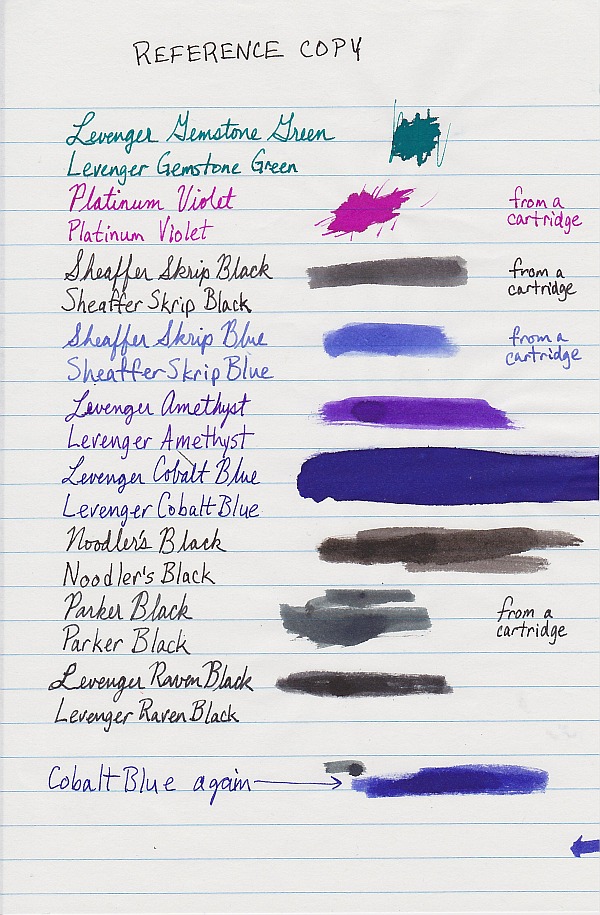 REFERENCE COPY
Levenger Gemstone Green
Levenger Gemstone Green
Platinum Violet
Platinum Violet
from a
cartridge
Sheaffer Skrip Black
Sheaffer Skrip Black
from a
cartridge
Sheaffer Skrip Blue
Sheaffer Skrip Blue
from a
cartridge
Levenger Amethyst
Levenger Amethyst
Levenger Cobalt Blue
Levenger Cobalt Blue
Noodler's Black
Noodler's Black
Parker Black
Parker Black
from a
cartridge
Levenger Raven Black
Levenger Raven Black
Cobalt Blue again